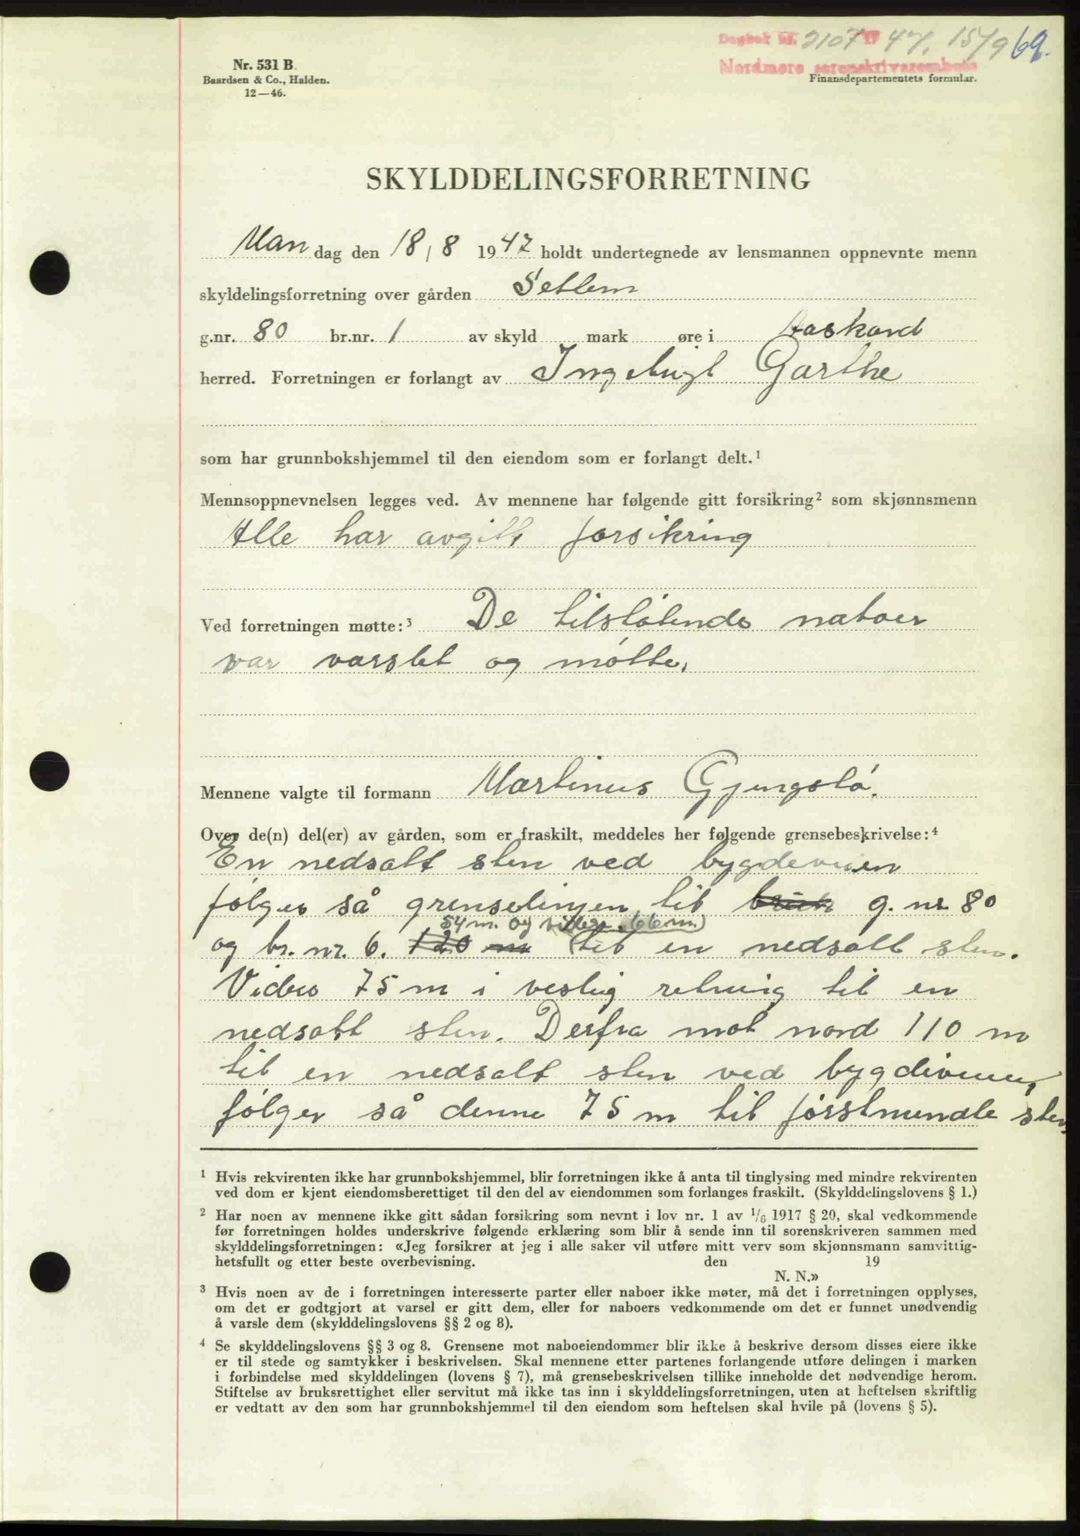 Dagbok nr. 2107 19 47. 15/9 69.
Nordmøre sorenskriverembete
Nr. 531 B.
Baardsen & Co., Halden.
12—46.
Finansdepartementets formular.
SKYLDDELINGSFORRETNING
Man dag den 18/8 1947 holdt undertegnede av lensmannen oppnevnte menn
skyldelingsforretning over gården Settem
g.nr. 80 br.nr. 1 av skyld mark øre i Aaskard
herred. Forretningen er forlangt av Ingebrigt Garthe
som har grunnbokshjemmel til den eiendom som er forlangt delt.¹
Mennsoppnevnelsen legges ved. Av mennene har følgende gitt forsikring² som skjønnsmenn
Alle har avgitt forsikring
Ved forretningen møtte:³ De tilstøtende naboer
var varslet og møtte.
Mennene valgte til formann Martinus Gjengstø.
Over de(n) del(er) av gården, som er fraskilt, meddeles her følgende grensebeskrivelse:⁴
En nedsatt sten ved bygdeveien
følger så grenselinjen til bruk g. nr. 80
54 m. og videre 66 m.)
og br. nr. 6. 120 m (til en nedsatt sten.
Videre 75 m i vestlig retning til en
nedsatt sten. Derfra mot nord 110 m
til en nedsatt sten ved bygdeveien,
følger så denne 75 m til førstnevnte sten
¹ Hvis rekvirenten ikke har grunnbokshjemmel, blir forretningen ikke å anta til tinglysing med mindre rekvirenten
ved dom er kjent eiendomsberettiget til den del av eiendommen som forlanges fraskilt. (Skylddelingslovens § 1.)
² Har noen av mennene ikke gitt sådan forsikring som nevnt i lov nr. 1 av ¹/₆ 1917 § 20, skal vedkommende
før forretningen holdes underskrive følgende erklæring som blir å sende inn til sorenskriveren sammen med
skylddelingsforretningen: «Jeg forsikrer at jeg i alle saker vil utføre mitt verv som skjønnsmann samvittig-
hetsfullt og etter beste overbevisning. den 19
N. N.»
³ Hvis noen av de i forretningen interesserte parter eller naboer ikke møter, må det i forretningen opplyses,
om det er godtgjort at varsel er gitt dem, eller for naboers vedkommende om det er funnet unødvendig
å varsle dem (skylddelingslovens §§ 2 og 8).
⁴ Se skylddelingslovens §§ 3 og 8. Grensene mot naboeiendommer blir ikke å beskrive dersom disses eiere ikke
er til stede og samtykker i beskrivelsen. Skal mennene etter partenes forlangende utføre delingen i marken
i forbindelse med skylddelingen (lovens § 7), må grensebeskrivelsen tillike inneholde det nødvendige herom.
Stiftelse av bruksrettighet eller servitut må ikke tas inn i skylddelingsforretningen, uten at heftelsen skriftlig
er vedtatt av den som har grunnbokshjemmel til den eiendom som heftelsen skal hvile på (lovens § 5).